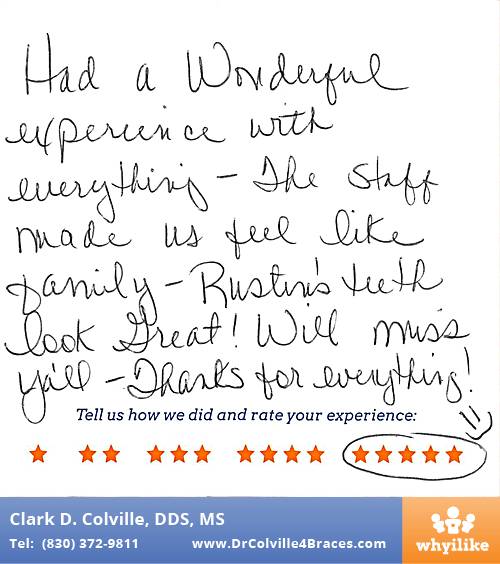 Had a Wonderful
experience with
everything - The Staff
made us feel like
family - Rustin's teeth
look Great! Will miss
ya'll - Thanks for everything!
Tell us how we did and rate your experience:
Clark D. Colville, DDS, MS
Tel: (830) 372-9811 www.DrColville4Braces.com
whyilike